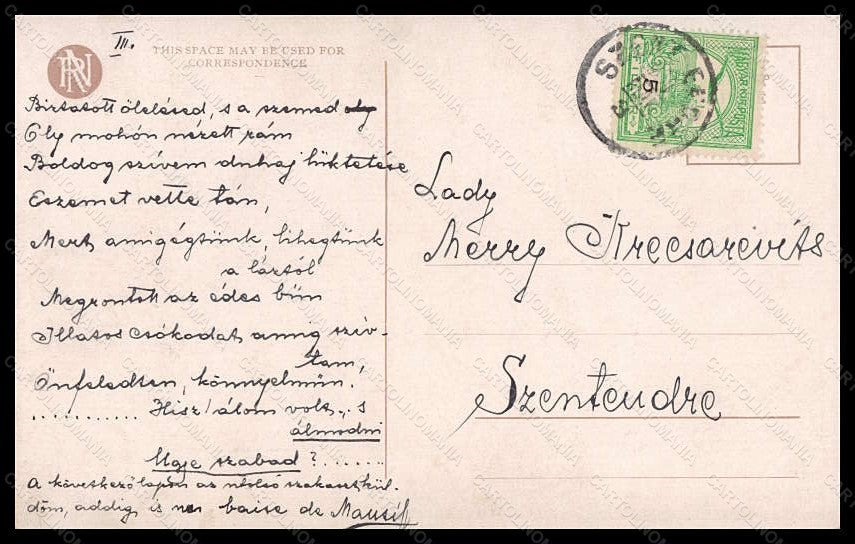 III.
THIS SPACE MAY BE USED FOR
CORRESPONDENCE
Biztatott ölelésed, s a szemed
Oly mohón nézett rám
Boldog szívem duhaj lüktetése
Eszemet vette tán,
Mert amig égtünk, lihegtünk
a láztól
Megrontott az édes bün
Illatos csókodat amig szív-
tam,
Önfeledten, könnyelmün.
........... Hisz álom volt .. s
álmodni
Ugye szabad ?......
A következő lapon az utolsó szakaszt kül-
döm, addig is baise de
Lady
Merry Krecsarevits
Szentendre